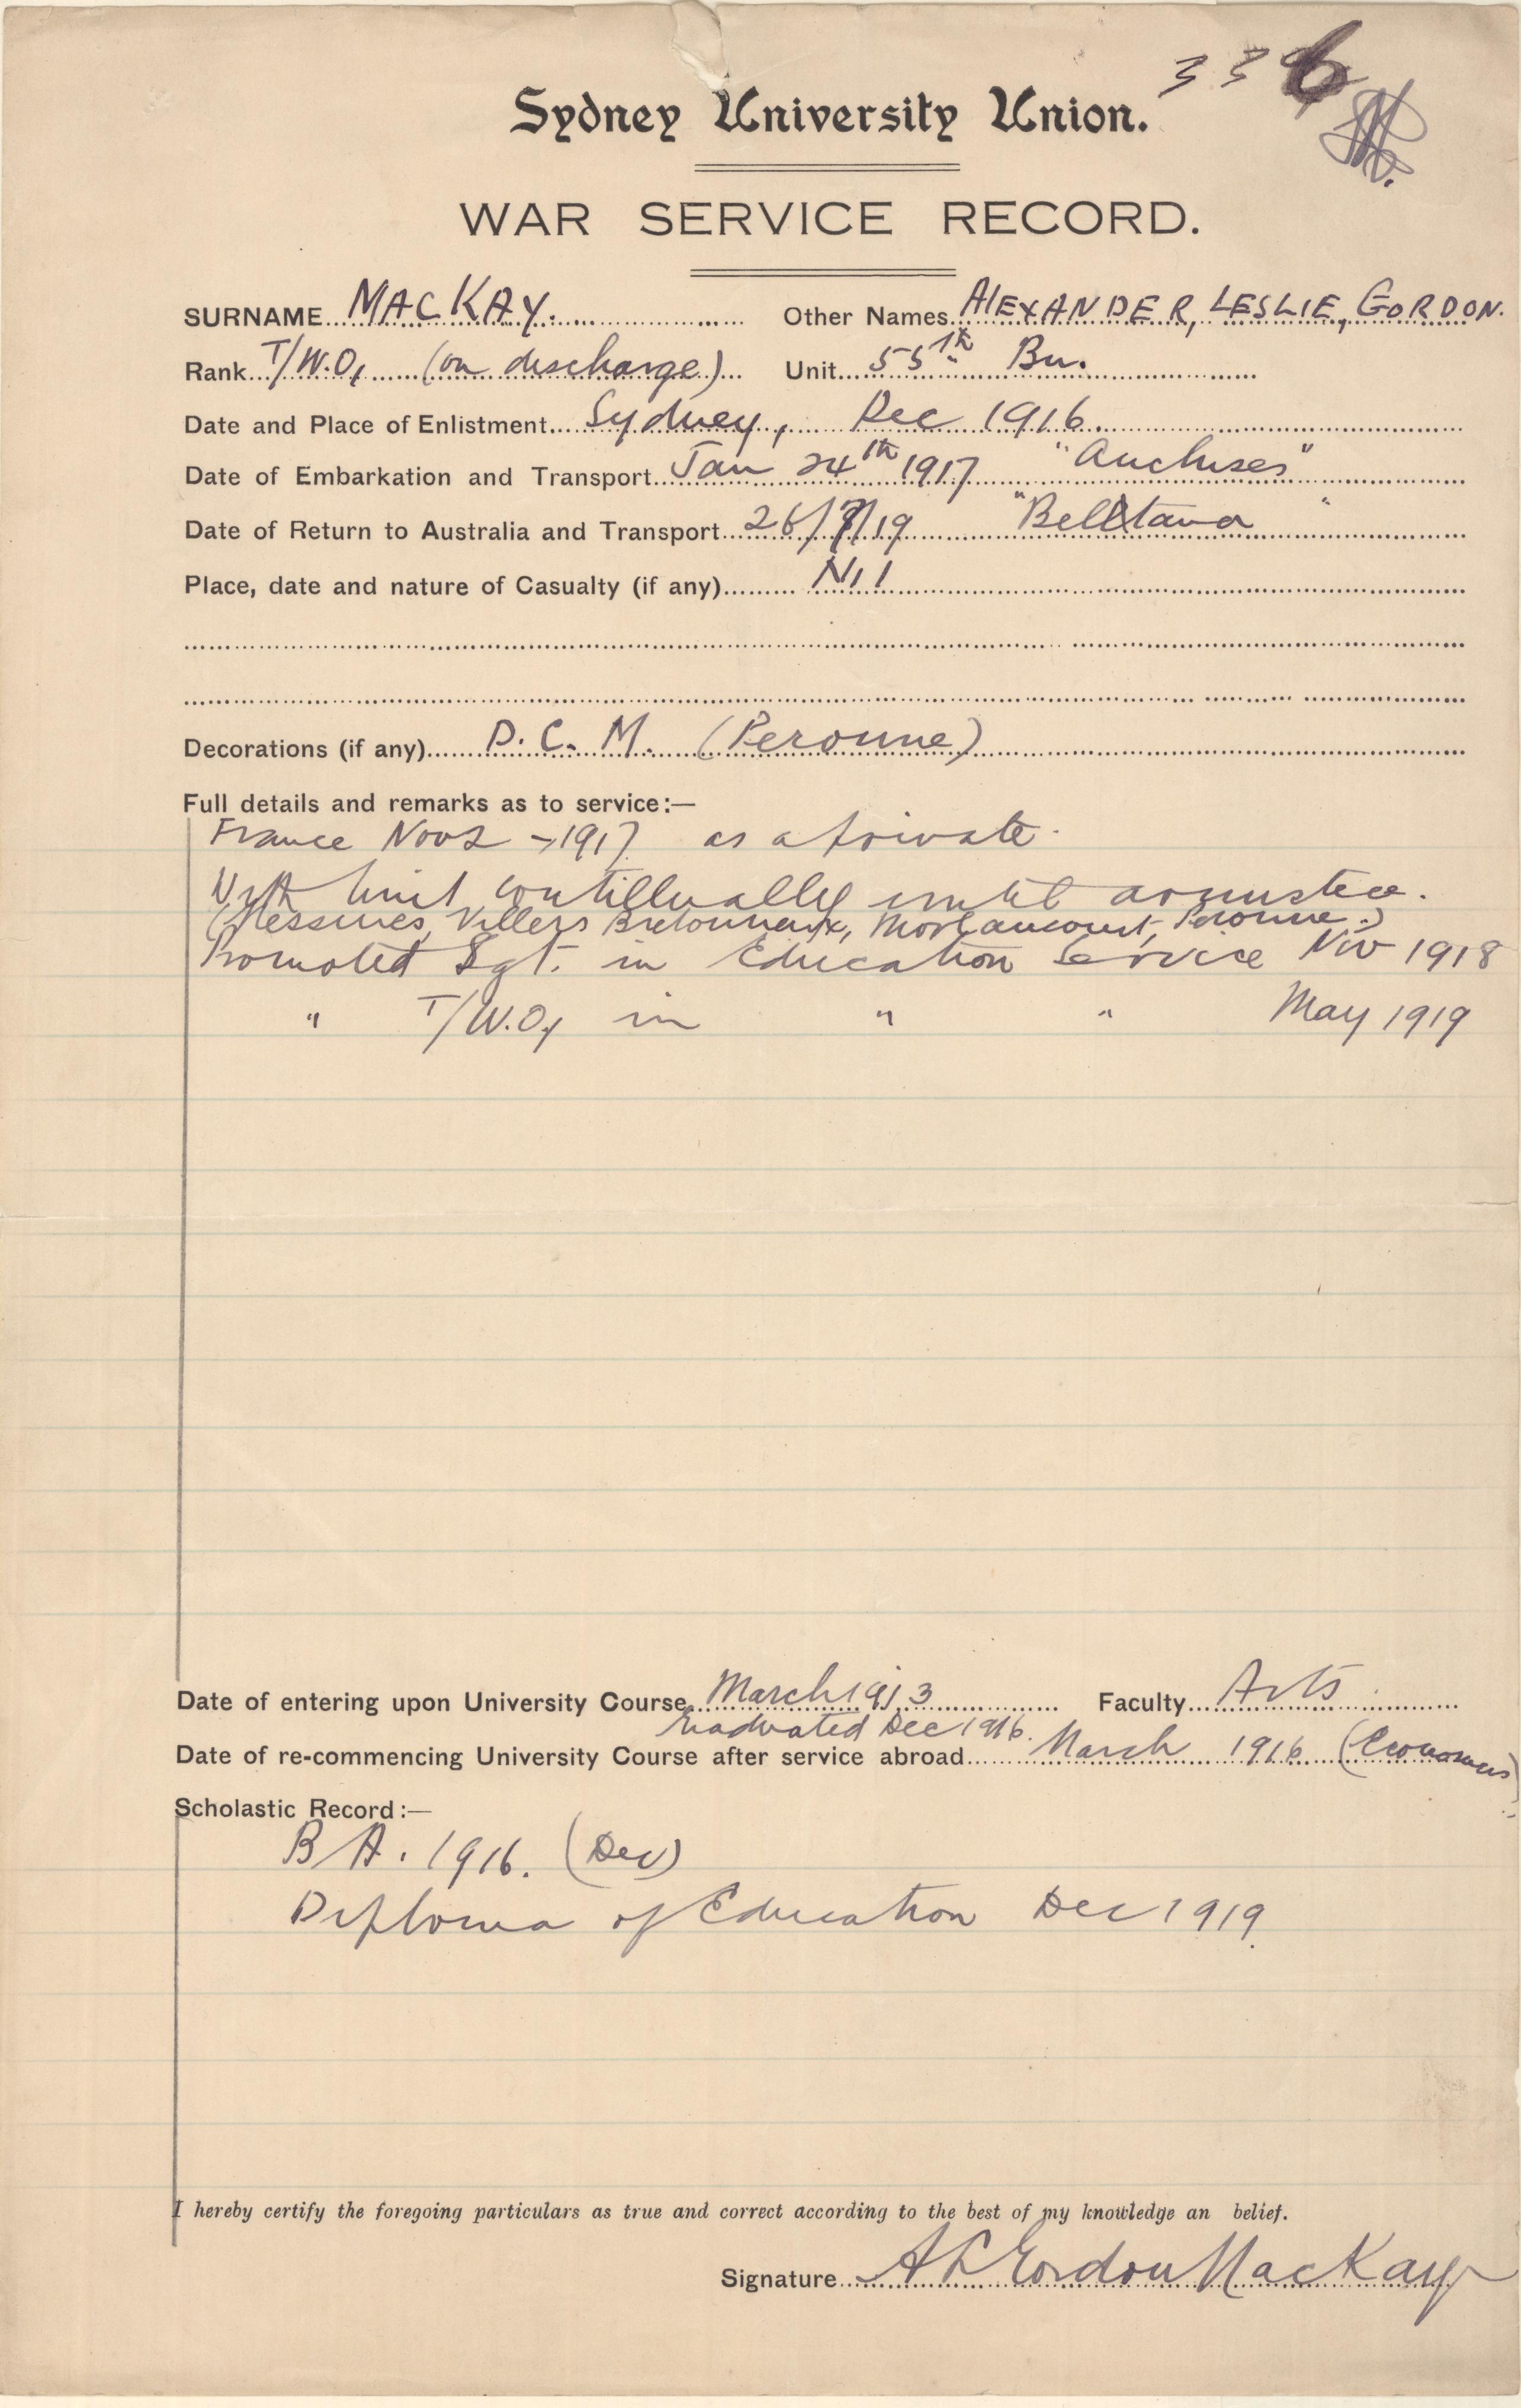 336
Sydney University Union.
WAR SERVICE RECORD.
SURNAME MACKAY. Other Names ALEXANDER, LESLIE, GORDON.
Rank T/W.O, (on discharge) Unit 55th Bn.
Date and Place of Enlistment Sydney, Dec 1916.
Date of Embarkation and Transport Jan 24th 1917 "Anchises"
Date of Return to Australia and Transport 26/7/19 "Belltana"
Place, date and nature of Casualty (if any) Nil
Decorations (if any) D.C.M. (Peronne)
Full details and remarks as to service:—
France Nov 1917 as a private.
With Unit continually until armistice.
(Messines, Villers Bretonneux, Morlancourt, Peronne.)
Promoted Sgt. in Education Service Nov 1918
" T/W.O, in " " May 1919
Date of entering upon University Course March 1913 Faculty Arts
Graduated Dec 1916.
Date of re-commencing University Course after service abroad March 1916 (Economics)
Scholastic Record:—
B A. 1916. (Dec)
Diploma of Education Dec 1919
I hereby certify the foregoing particulars as true and correct according to the best of my knowledge an belief.
Signature A L Gordon MacKay